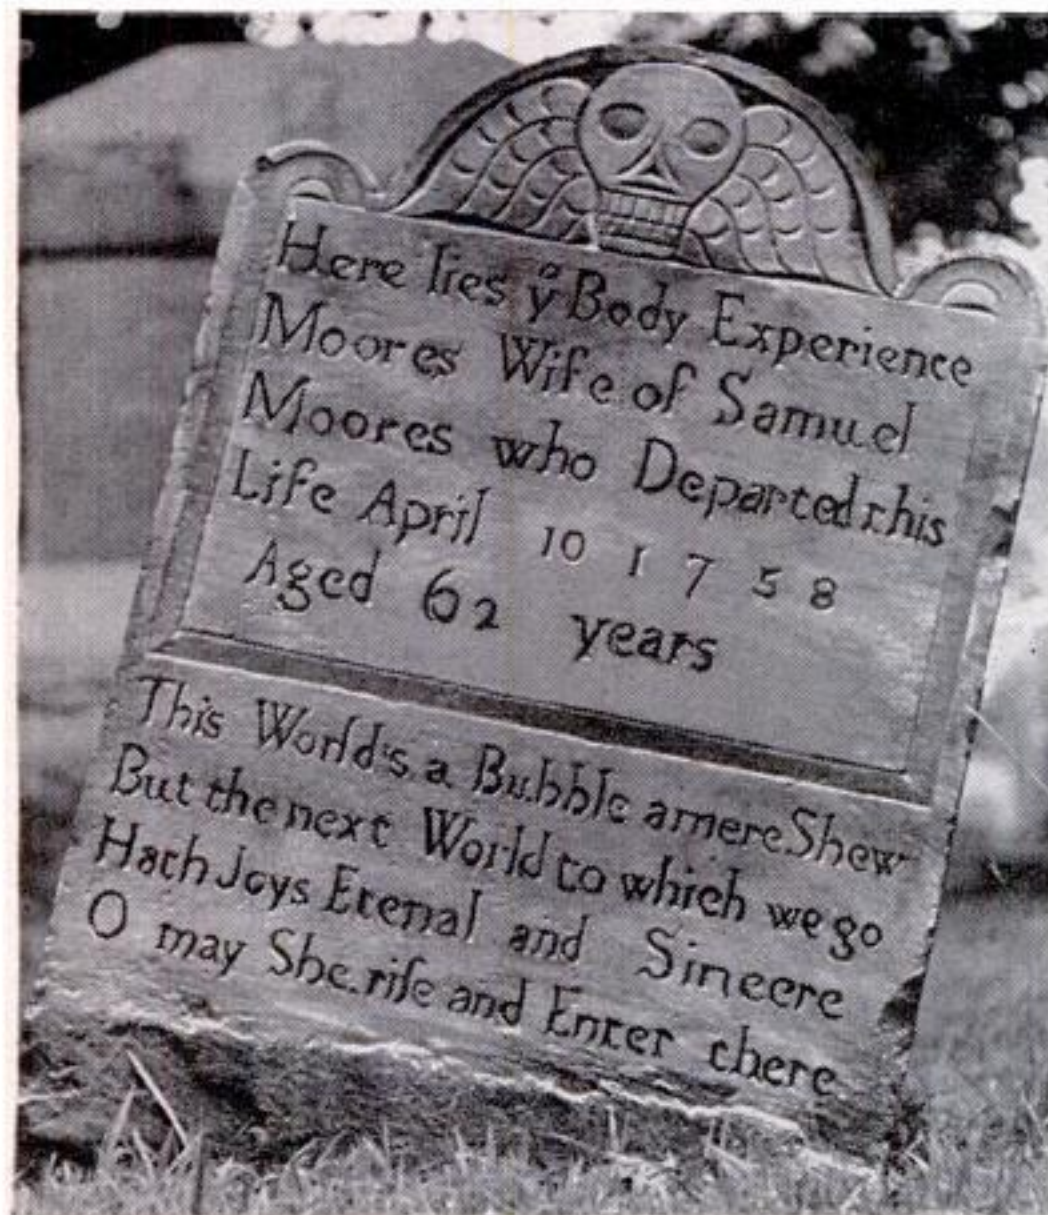 Here lies yᵉ Body Experience
Moores Wife of Samuel
Moores who Departed this
Life April 10 1758
Aged 62 years
This World's a Bubble a mere Shew
But the next World to which we go
Hath Joys Eternal and Sincere
O may She rise and Enter there